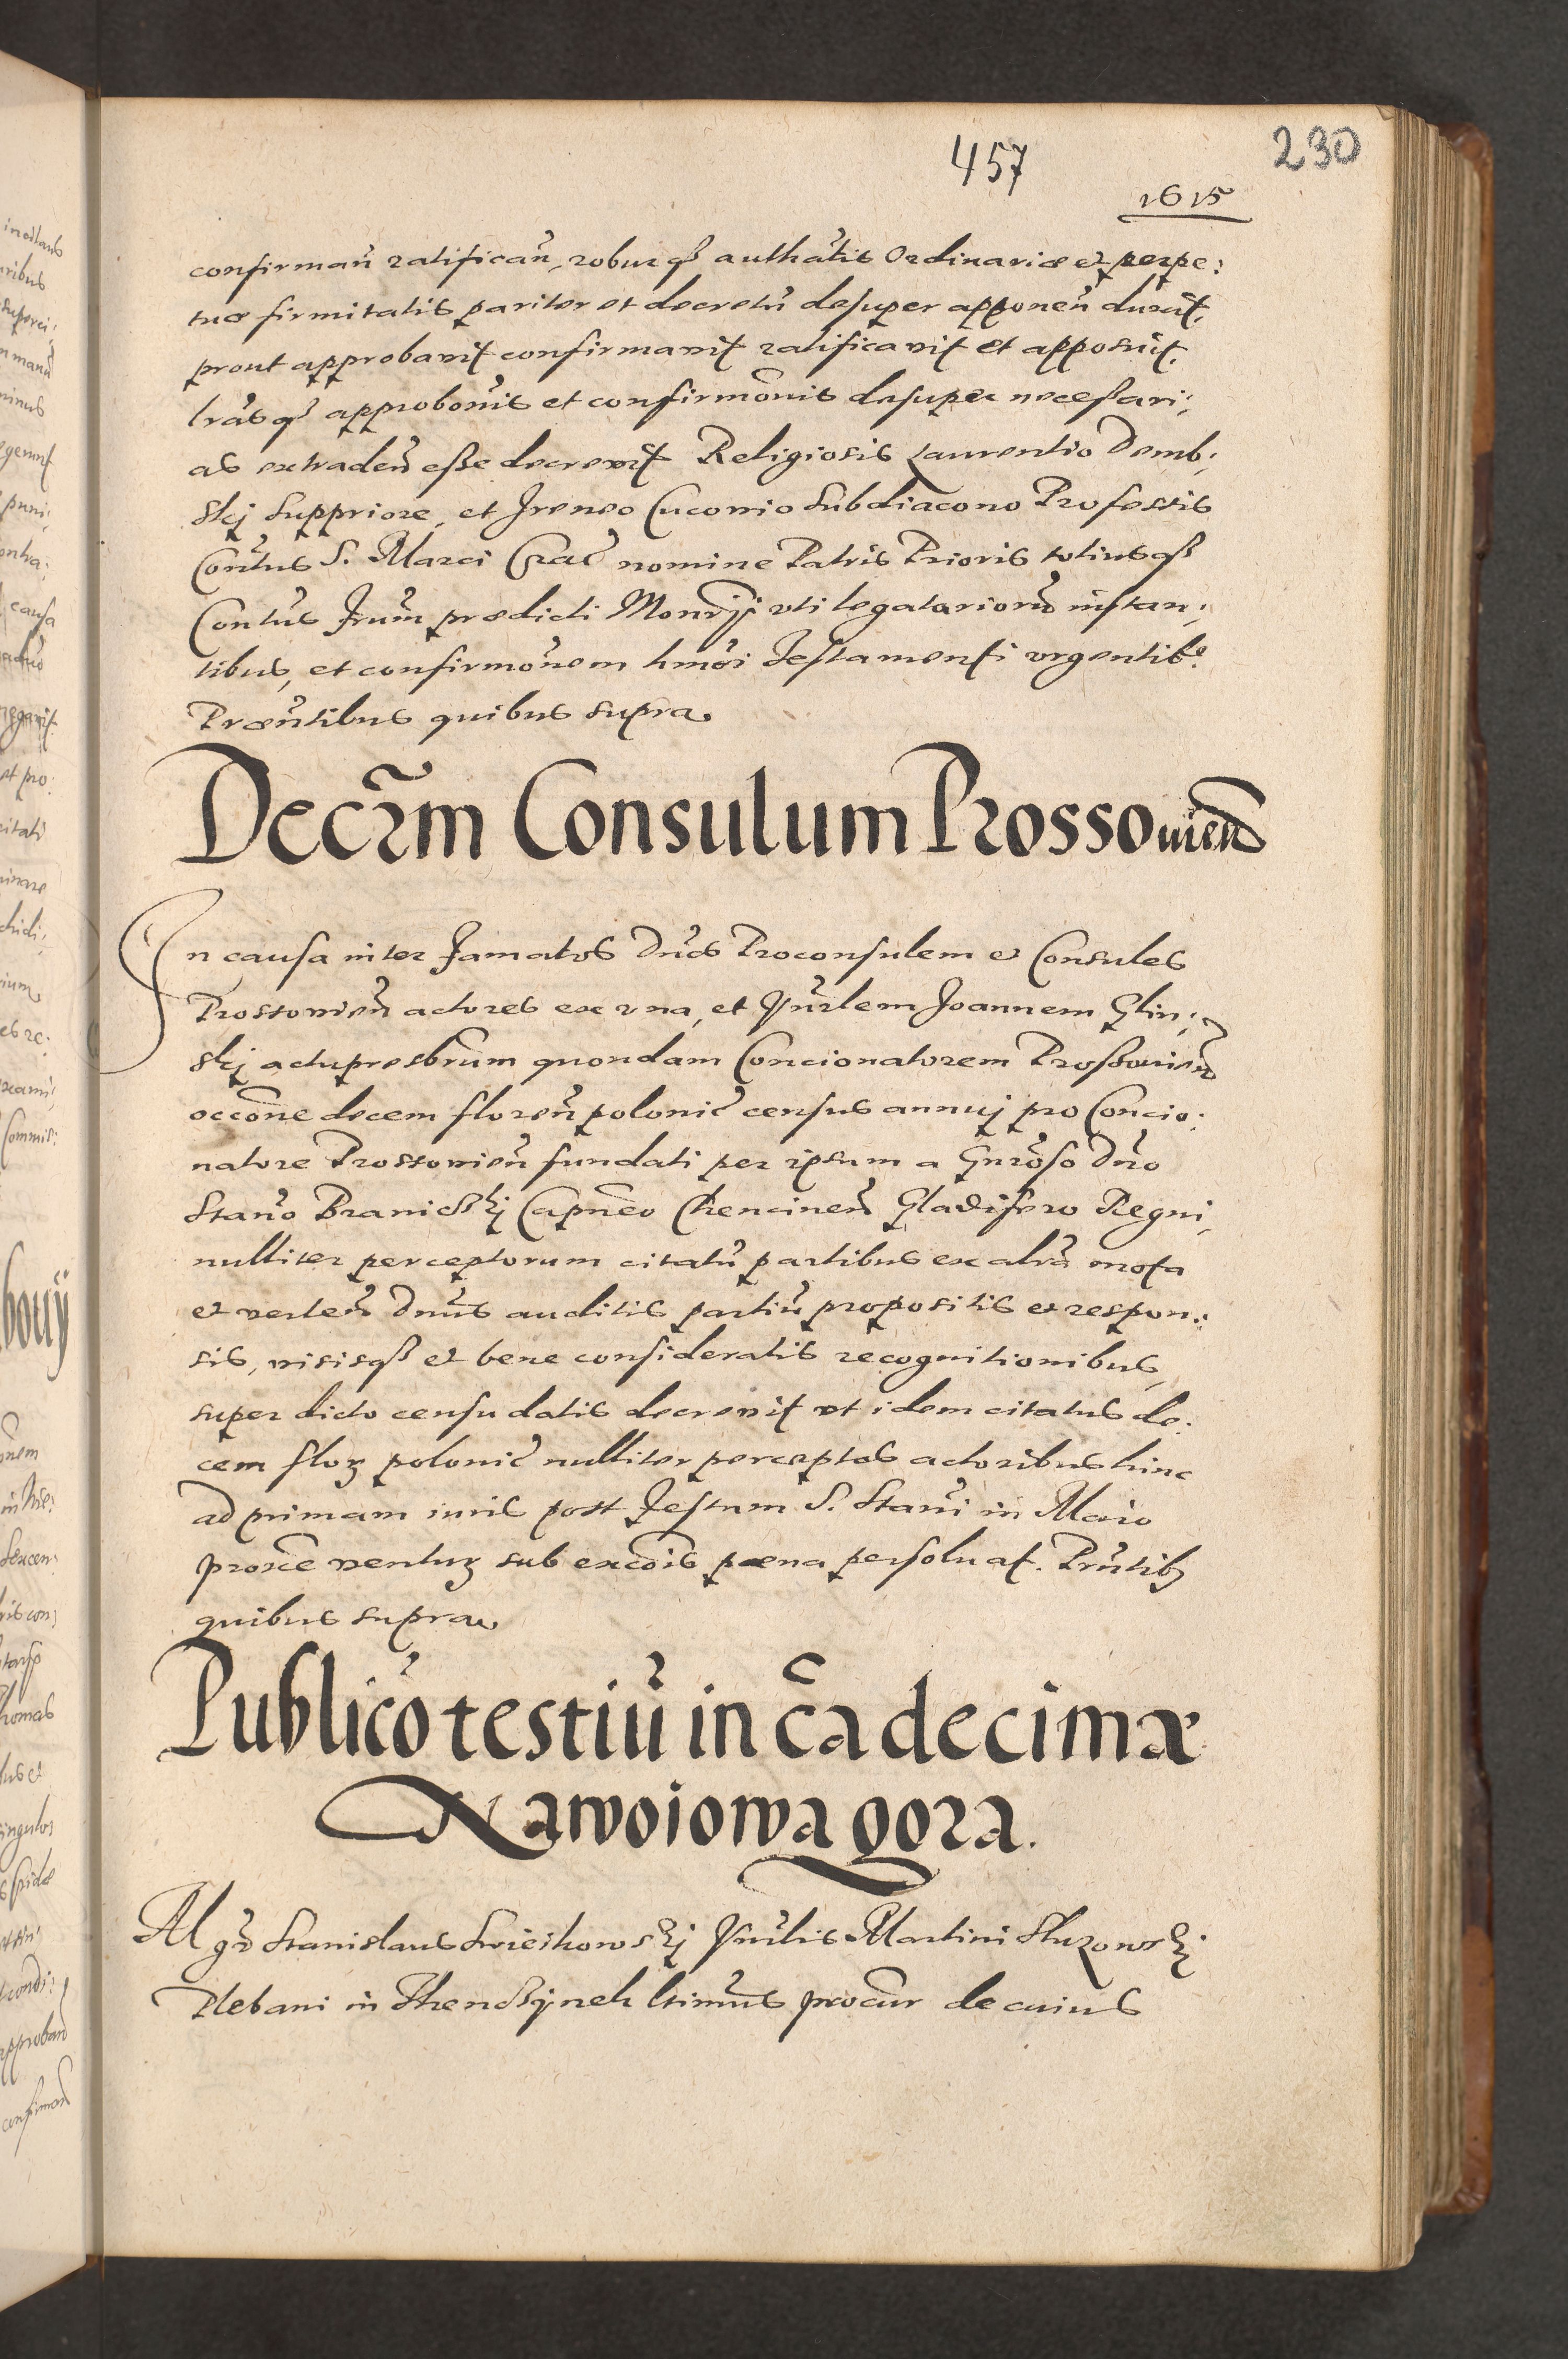 457
230
1615
confirman̄ ratifican̄, roburq̃ authãtis Ordinariæ et perpe:
tuæ firmitatis pariter et decretũ desuper apponen̄ duxit,
prout approbavit confirmavit ratificavit et apposuit.
lrãsq̃ approbõnis et confirmõnis desuper necessari:
as extraden̄ esse decrevit Religiosis Laurentio Demb:
skj Suppriore, et Ireneo Cuconio Subdiacono Professis
Con̄tus S. Marci Crac̃ nomine Patris Prioris totiusq̃
Con̄tus Frum̃ prædicti Monrÿ uti legatariorũ instan:
tibus, et confirmõnem hmõi Testamenti urgentibꝰ
Præn̄tibus quibus supra
Decr̃m Consulum Prossovien̄
In causa inter Famatos Dn̄os Proconsulem et Consules
Prossovien̄ actores ex una, et Vn̄rlem Joannem Glin:
skj actu presbrũm quondam Concionatorem Prossovien̄
occõne decem floren̄ polonic̃ census annuj pro Concio:
natore Prossovien̄ fundati per ipsum a Gnrõso Dn̄o
Stan̄o Branickj Capn̄eo Chencinen̄ Gladifero Regni,
nulliter perceptorum citatũ partibus ex altrã mota
et verten̄ Dn̄us auditis partiũ propositis et respon:
sis, visisq̃ et bene consideratis recognitionibus,
super dicto censu datis decrevit ut idem citatus de:
cem flor̃ polonic̃ nulliter perceptos actoribus hinc
ad primam iuris post Festum S. Stan̄i in Maio
proxe ventur̃ sub excõis pœna persoluat. Prn̄tibꝫ
quibus supra
Publicõ testiũ in cã decimæ
Nawoiowa gora.
Mgr̃ Stanislaus Swiechowskj Vn̄rlis Martini Sluzowskj
Plebani in Thenczÿnek ltimũs procur̃ de cuius